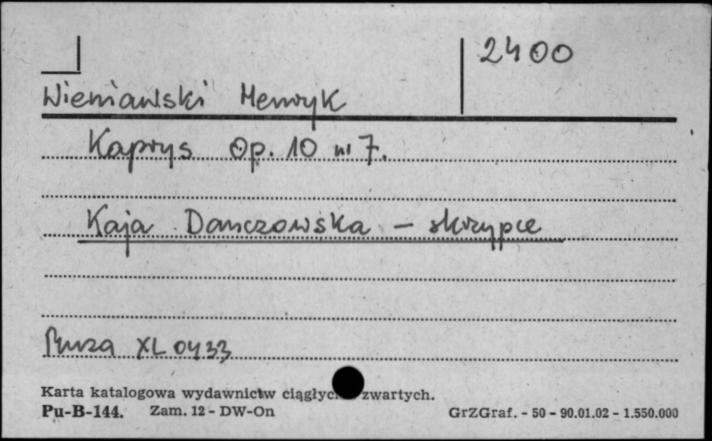 2400
Wieniawski Henryk
Kaprys Op. 10 nr 7.
Kaja Danczowska - skrzypce
Muza XL 0433
Karta katalogowa wydawnictw ciągłyc zwartych.
Pu-B-144. Zam. 12 - DW-On GrZGraf. - 50 - 90.01.02 - 1.550.000